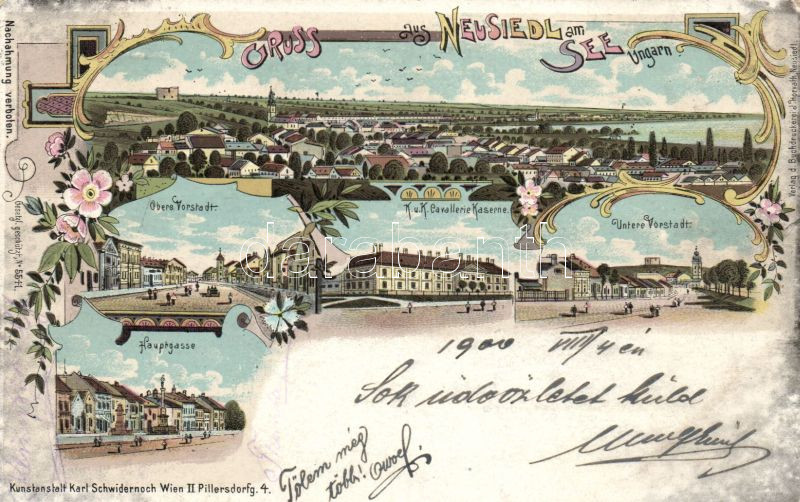 Gruss aus Neusiedl am See Ungarn.
Nachahmung verboten.
Gesetzl. geschützt. N° 5541.
Verlag d. Buchdruckerei d. Horvath Neusiedl
Obere Vorstadt.
K. u. K. Cavallerie Kaserne.
Untere Vorstadt.
darabanth.com
Hauptgasse
1900 VIII/4 én
Sok üdvözletet küld
Tőlem még
több!
Kunstanstalt Karl Schwidernoch Wien II Pillersdorfg. 4.